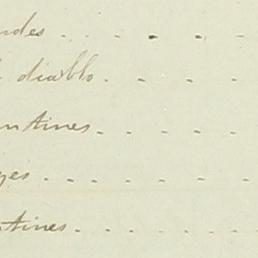 ndes . . . . .
diablo . . . .
ntines . . . . .
ges . . . . . . .
ntines . . . . . .